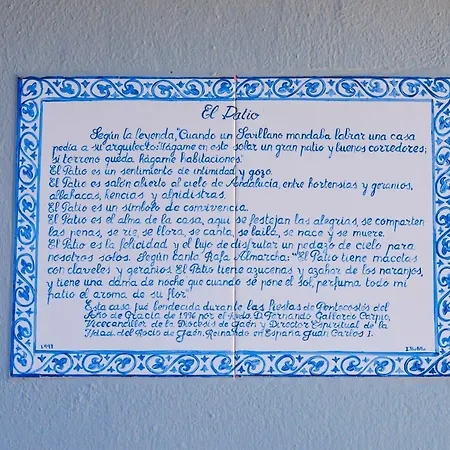 El Patio
Según la leyenda, "Cuando un Sevillano mandaba labrar una casa
pedía a su arquitecto: "Hágame en este solar un gran patio y buenos corredores;
si terreno queda hágame habitaciones."
El Patio es un sentimiento de intimidad y gozo.
El Patio es salón abierto al cielo de Andalucía, entre hortensias y geranios,
albahacas, kencias y alpidistras.
El Patio es un símbolo de convivencia.
El Patio es el alma de la casa, aquí se festejan las alegrías, se comparten
las penas, se ríe, se llora, se canta, se baila, se nace y se muere.
El Patio es la felicidad y el lujo de disfrutar un pedazo de cielo para
nosotros solos. Según canta Rafa Almarcha: "El Patio tiene macetas
con claveles y geranios El Patio tiene azucenas y azahar de los naranjos,
y tiene una dama de noche que cuando se pone el sol, perfuma todo mi
patio el aroma de su flor".
Esta casa fué bendecida durante las fiestas de Pentecostés del
Año de Gracia de 1996 por el Rvdo. D. Fernando Gallardo Carpio,
Vicecanciller de la Diócesis de Jaén y Director Espiritual de la
Hdad. del Rocío de Jaén, Reinando en España Juan Carlos I.